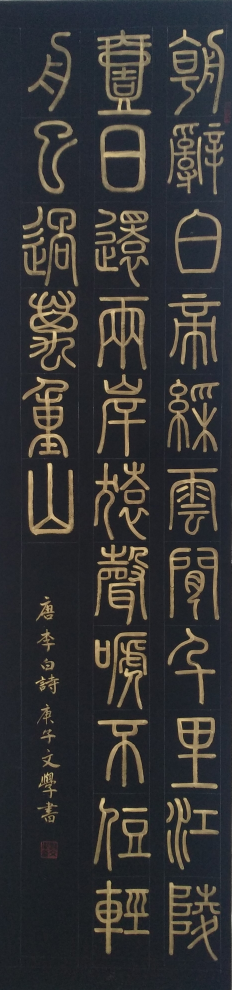 朝辭白帝綵雲間千里江陵
壹日還兩岸猿聲嗁不住輕
舟已過萬重山
唐李白詩庚子文學書